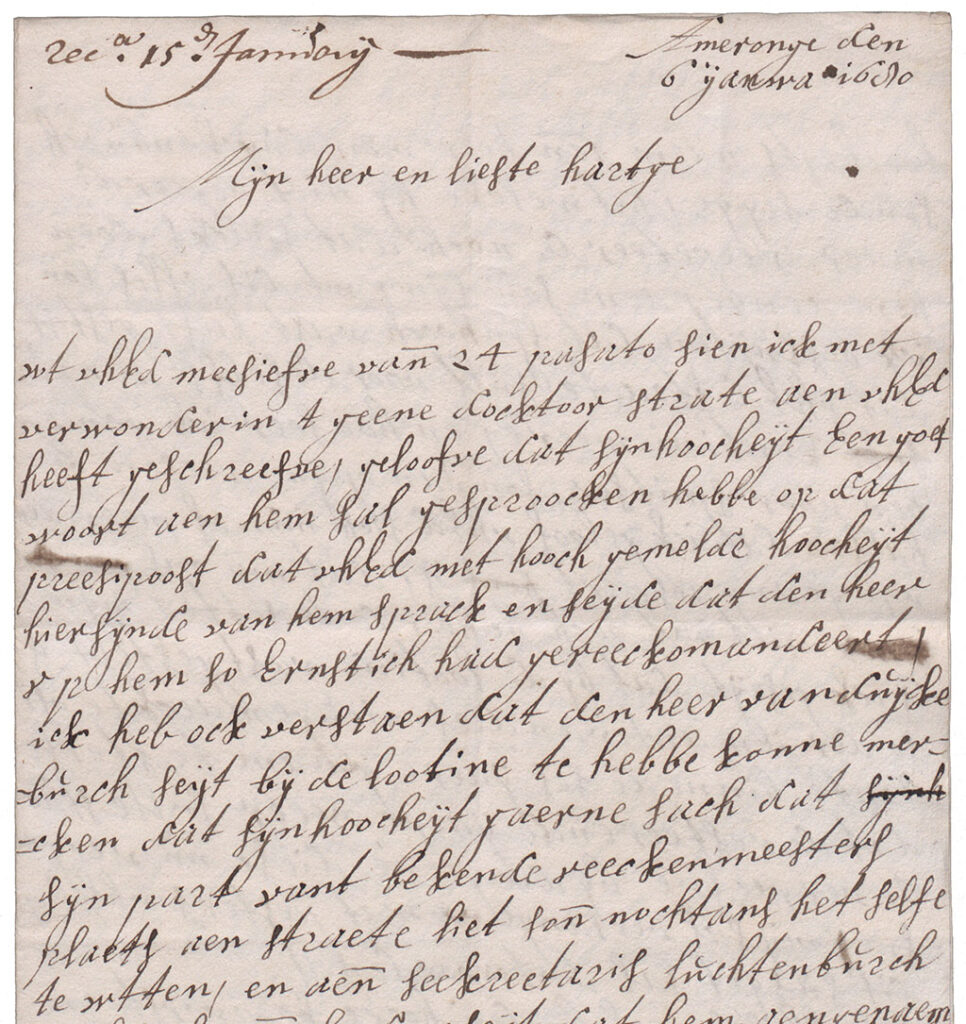 Reca. 15 d. Jannoarÿ
Ameronge den
6 ÿanwa 1680
Mÿn heer en liefste hartge
wt uhEd meesiefve vann 24 pasato sien ick met
verwonderin t geene docktoor strate aen uhEd
heeft geschreefve, geloofve dat sÿnhoocheÿt Een goet
woort aen hem sal gesproocken hebbe op dat
preesipoost dat uhEd met hooch gemelde hoocheÿt
hiersÿnde van hem sprack en seÿde dat den heer
r p hem so Ernstich had gereeckomandeert,
ick heb ock verstaen dat den heer van duÿcke
=burch seÿt bÿ de lootine te hebbe konne mer=
=cken dat sÿnhoocheÿt gaerne sach dat sÿnh
sÿn part vant bekende reeckenmeesters
plaets aen straete liet sonn nochtans het selfe
te wtten, en aenn seekreetaris luchtenburch
seÿt dat hem aengenaem